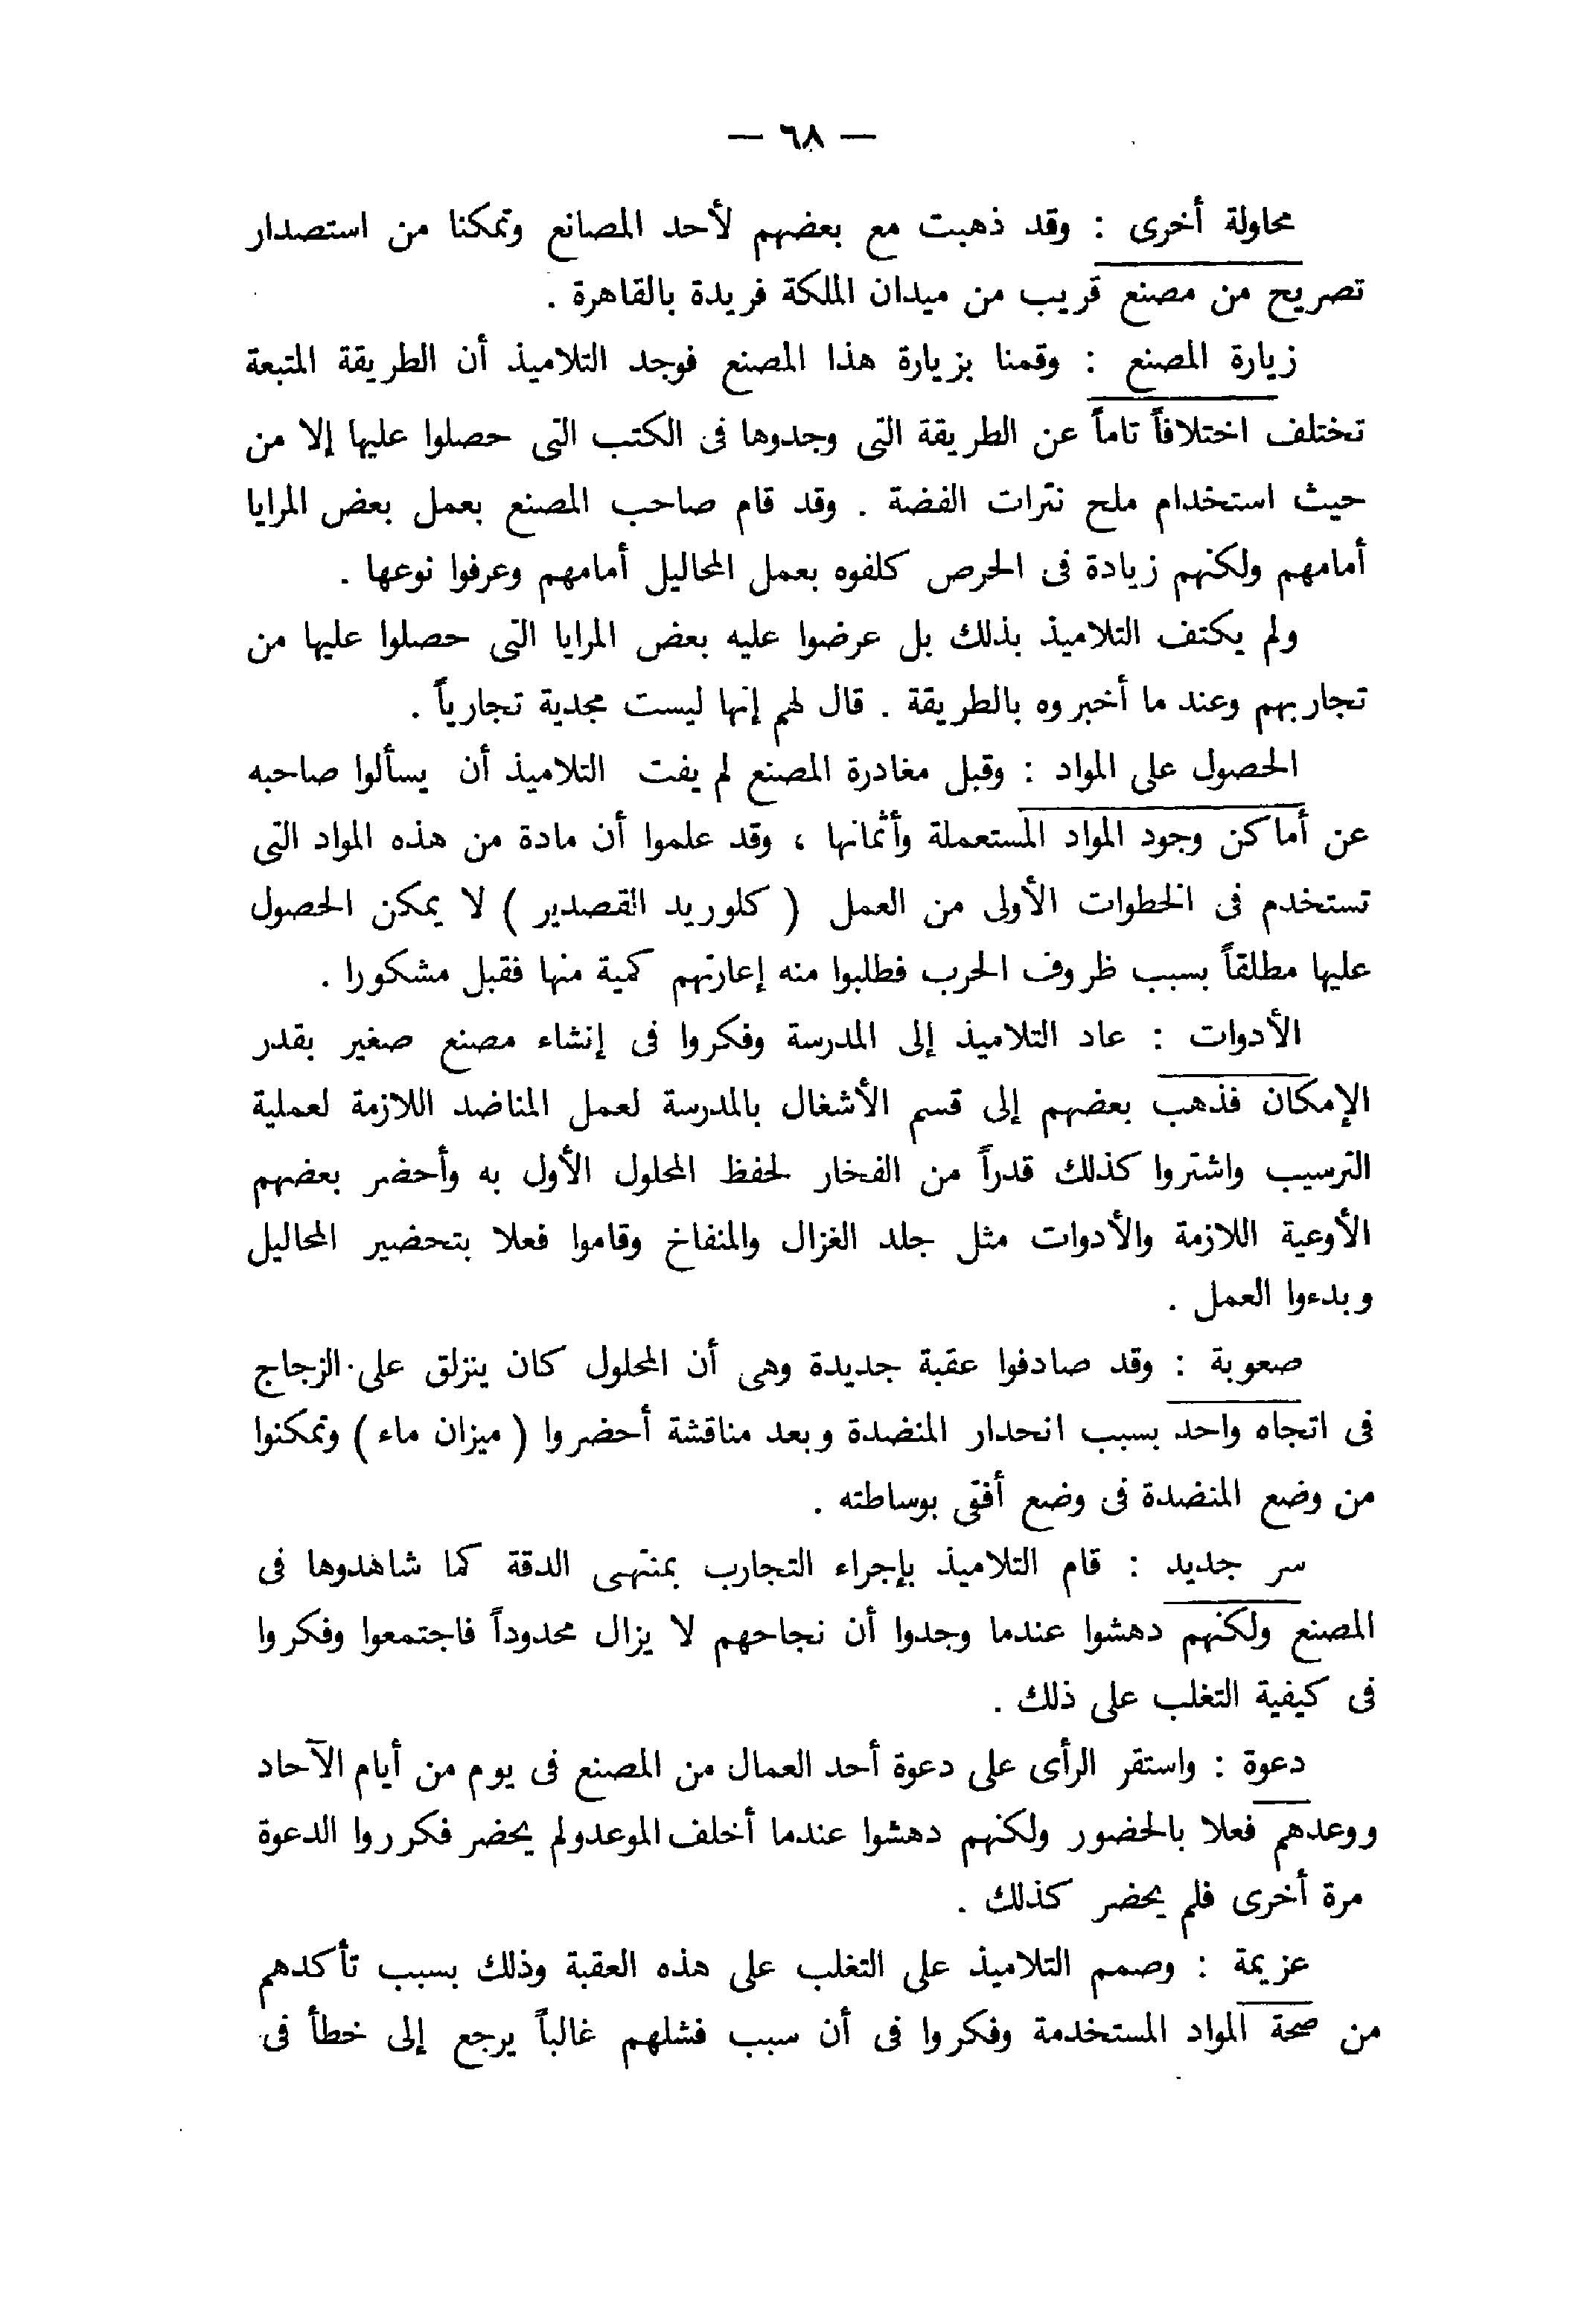 — ٦٨ —
محاولة أخرى : وقد ذهبت مع بعضهم لأحد المصانع وتمكنا من استصدار
تصريح من مصنع قريب من ميدان الملكة فريدة بالقاهرة .
زيارة المصنع : وقمنا بزيارة هذا المصنع فوجد التلاميذ أن الطريقة المتبعة
تختلف اختلافاً تاماً عن الطريقة التى وجدوها فى الكتب التى حصلوا عليها إلا من
حيث استخدام ملح نترات الفضة . وقد قام صاحب المصنع بعمل بعض المرايا
أمامهم ولكنهم زيادة فى الحرص كلفوه بعمل المحاليل أمامهم وعرفوا نوعها .
ولم يكتف التلاميذ بذلك بل عرضوا عليه بعض المرايا التى حصلوا عليها من
تجاربهم وعند ما أخبروه بالطريقة . قال لهم إنها ليست مجدية تجارياً .
الحصول على المواد : وقبل مغادرة المصنع لم يفت التلاميذ أن يسألوا صاحبه
عن أماكن وجود المواد المستعملة وأثمانها ، وقد علموا أن مادة من هذه المواد التى
تستخدم فى الخطوات الأولى من العمل ( كلوريد القصدير ) لا يمكن الحصول
عليها مطلقاً بسبب ظروف الحرب فطلبوا منه إعارتهم كمية منها فقبل مشكورا .
الأدوات : عاد التلاميذ إلى المدرسة وفكروا فى إنشاء مصنع صغير بقدر
الإمكان فذهب بعضهم إلى قسم الأشغال بالمدرسة لعمل المناضد اللازمة لعملية
الترسيب واشتروا كذلك قدراً من الفخار لحفظ المحلول الأول به وأحضر بعضهم
الأوعية اللازمة والأدوات مثل جلد الغزال والمنفاخ وقاموا فعلا بتحضير المحاليل
وبدءوا العمل .
صعوبة : وقد صادفوا عقبة جديدة وهى أن المحلول كان ينزلق على الزجاج
فى اتجاه واحد بسبب انحدار المنضدة وبعد مناقشة أحضروا ( ميزان ماء ) وتمكنوا
من وضع المنضدة فى وضع أفقى بوساطته .
سر جديد : قام التلاميذ بإجراء التجارب بمنتهى الدقة كما شاهدوها فى
المصنع ولكنهم دهشوا عندما وجدوا أن نجاحهم لا يزال محدوداً فاجتمعوا وفكروا
فى كيفية التغلب على ذلك .
دعوة : واستقر الرأى على دعوة أحد العمال من المصنع فى يوم من أيام الآحاد
ووعدهم فعلا بالحضور ولكنهم دهشوا عندما أخلف الموعد ولم يحضر فكرروا الدعوة
مرة أخرى فلم يحضر كذلك .
عزيمة : وصمم التلاميذ على التغلب على هذه العقبة وذلك بسبب تأكدهم
من صحة المواد المستخدمة وفكروا فى أن سبب فشلهم غالباً يرجع إلى خطأ فى